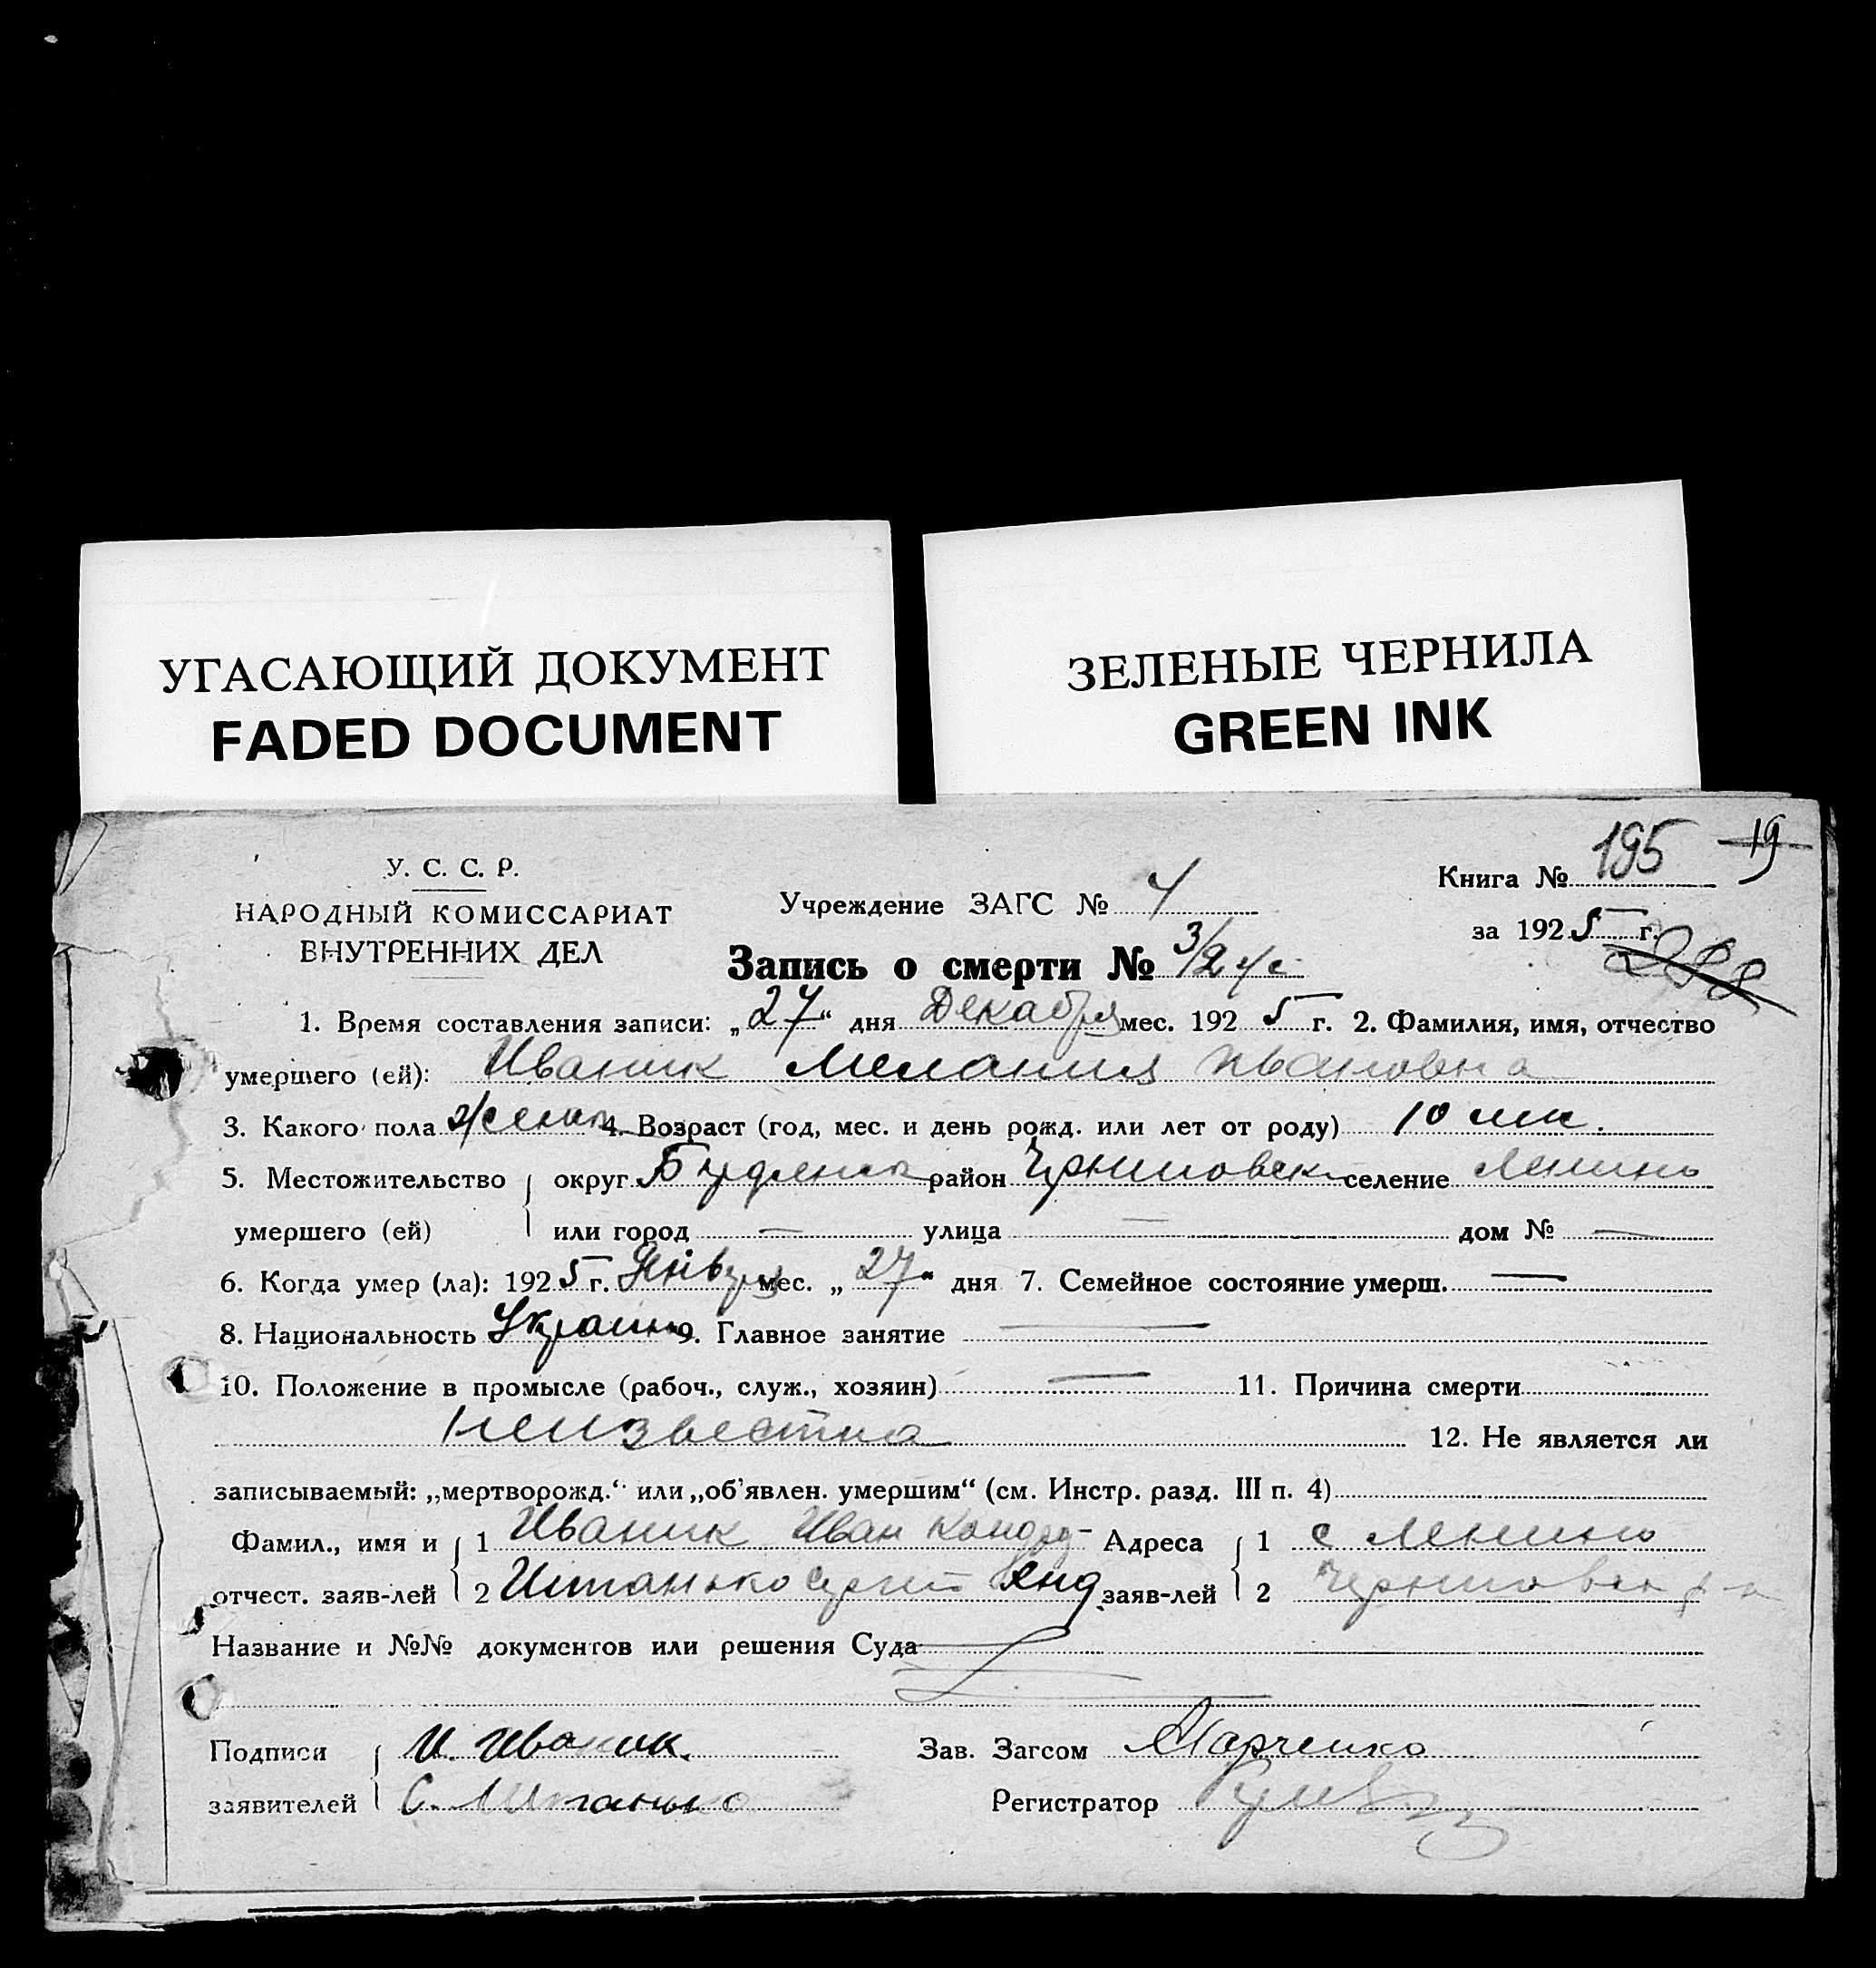 УГАСАЮЩИЙ ДОКУМЕНТ
FADED DOCUMENT
ЗЕЛЕНЫЕ ЧЕРНИЛА
GREEN INK
У. С. С. Р.
НАРОДНЫЙ КОМИССАРИАТ
ВНУТРЕННИХ ДЕЛ
Учреждение ЗАГС № 4
Книга № 195 19
за 1925 г.
Запись о смерти № 3/2
1. Время составления записи: „27“ дня Декабря мес. 1925 г. 2. Фамилия, имя, отчество
умершего (ей): Иваник Мелания Ивановна
3. Какого пола женск 4. Возраст (год, мес. и день рожд. или лет от роду) 10
5. Местожительство округ район селение Ленино
умершего (ей) или город — улица — дом № —
6. Когда умер (ла): 1925 г. Января мес. „27“ дня 7. Семейное состояние умерш. —
8. Национальность 9. Главное занятие —
10. Положение в промысле (рабоч., служ., хозяин) — 11. Причина смерти
неизвестна 12. Не является ли
записываемый: „мертворожд.“ или „об'явлен. умершим“ (см. Инстр. разд. III п. 4)
Фамил., имя и 1 Иваник Иван Кондр- Адреса 1 с Ленино
отчест. заяв-лей 2 заяв-лей 2
Название и №№ документов или решения Суда
Подписи И. Иваник. Зав. Загсом Марченко
заявителей С. Регистратор